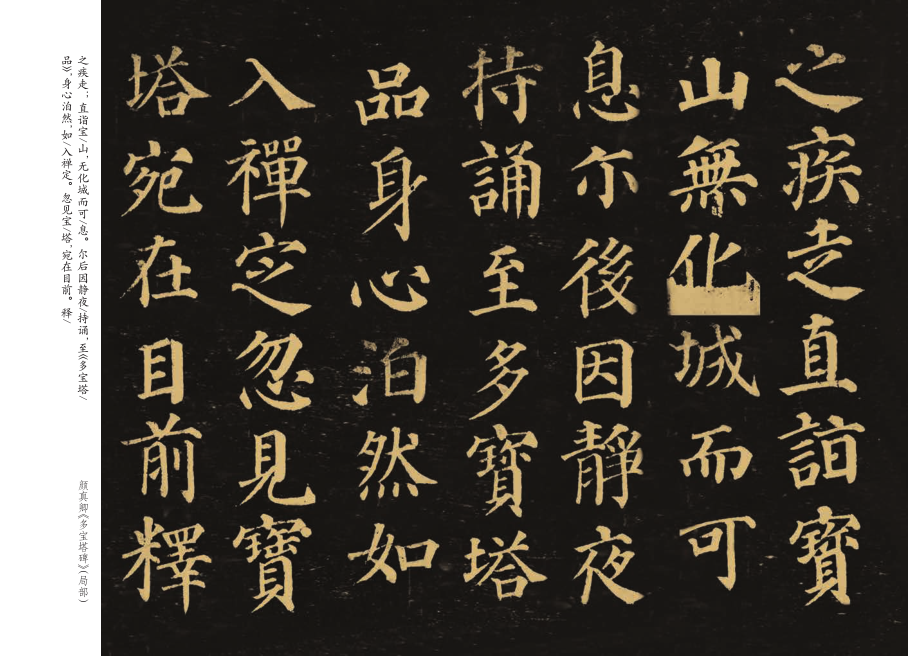 之疾走直詣寶
山無化城而可
息尒後因靜夜
持誦至多寶塔
品身心泊然如
入禪定忽見寶
塔宛在目前釋
之疾走；直诣宝/山，无化城而可/息。尔后因静夜/持诵，至《多宝塔/
品》，身心泊然，如/入禅定。忽见宝/塔，宛在目前。释/
颜真卿《多宝塔碑》(局部)